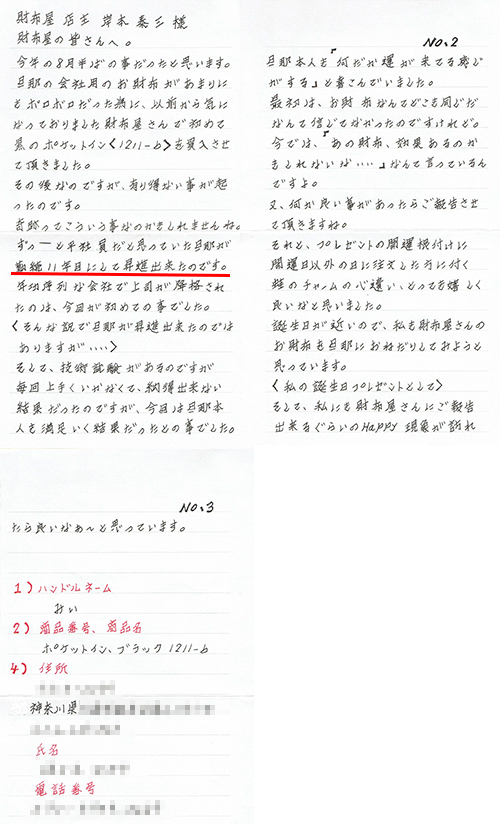 財布屋 店主 岸本 泰三 様
財布屋の皆さんへ。
今年の8月半ばの事だったと思います。
旦那の会社用のお財布があまりに
もボロボロだった為に、以前から気に
なっておりました財布屋さんで初めて
黒のポケットイン<1211-b>を購入させ
て頂きました。
その後なのですが、有り得ない事が起
ったのです。
奇跡ってこういう事なのかもしれませんね。
ずっーと平社員だと思っていた旦那が
勤続11年目にして昇進出来たのです。
年功序列な会社で上司が降格され
たのは、今回が初めての事でした。
<そんな訳で旦那が昇進出来たのでは
ありますが‥‥>
そして、技術試験があるのですが
毎回上手くいかなくて、納得出来ない
結果だったのですが、今回は旦那本
人も満足いく結果だったとの事でした。
No.2
旦那本人も『何だか運が来てる感じ
がする』と喜んでいました。
最初は、お財布なんてどこも同じだ
なんて信じてなかったのですけれど。
今では、『あの財布、効果あるのか
もしれないな‥‥』なんて言っているん
ですよ。
又、何か良い事があったらご報告させ
て頂きますね。
それと、プレゼントの開運根付けに
開運日以外の日に注文した方に付く
蛙のチャームの心遣い、とっても嬉しく
良いなと思いました。
誕生日が近いので、私も財布屋さんの
お財布を旦那におねだりしておようと
思っています。
<私の誕生日プレゼントとして>
そして、私にも財布屋さんにご報告
出来るぐらいのHappy 現象が訪れ
No.3
たら良いなあ〜と思っています。
1)ハンドルネーム
みい
2)商品番号、商品名
ポケットイン、ブラック 1211-b
4)住所
神奈川県
氏名
電話番号